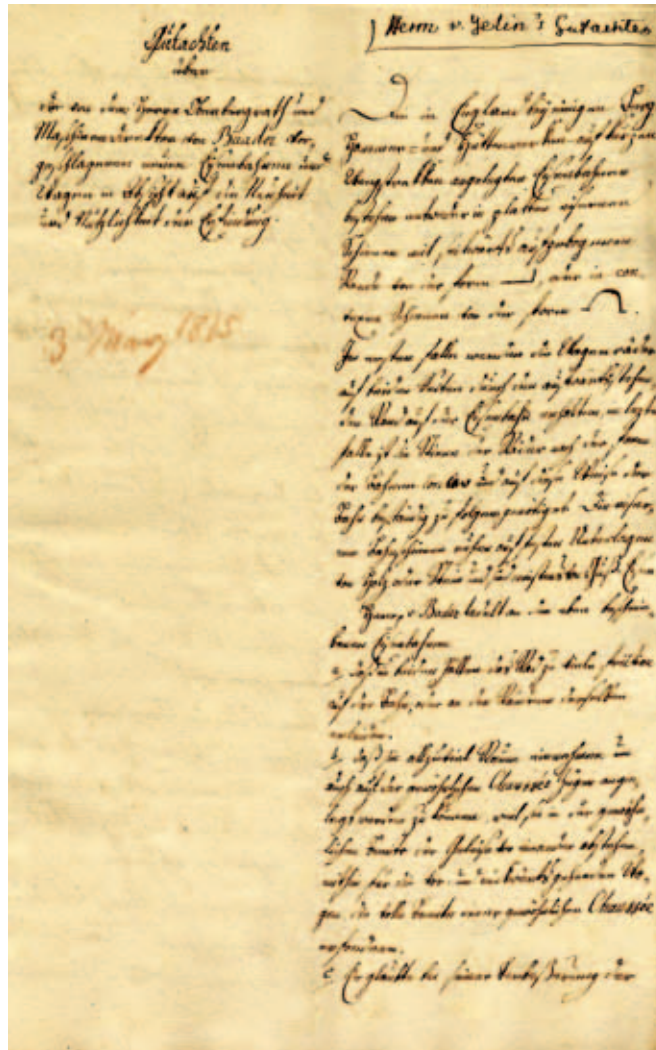 Gutachten
über
die von dem Herrn Oberbergrath und
Maschinendirektor von Baader vor-
geschlagenen neuen Eisenbahnen und
Wagen in Absicht auf die Neuheit
und Nützlichkeit der Erfindung.
3 März 1815
Herrn v. Yelin's Gutachten
Die in England bey einigen Berg
Hammer- und Hüttenwerken auf kurzen
angelegten Eisenbahnen
bestehen entweder in platten eisernen
Schienen mit seitwärts aufgebogenem
Rande von der Form, oder in con-
vexen Schienen von der Form.
Im ersten Falle werden die Wagenräder
auf beiden Seiten durch den auswärts stehen-
den Rand auf der Eisenbahn erhalten, im letzten
Falle ist die der Räder nach der Form
der Bahnen concav und auf diese Weise der
Bahn beständig zu folgen genöthiget. Die
Bahnschienen ruhen auf festen Unterlagen
von Holz oder Stein und sind meistens von Guß Eisen
Herr v. Baader tadelt an den eben beschrie-
benen Eisenbahnen
a, daß in beiden Fällen das Rad zu viele
auf der Bahn, oder an den Rändern derselben
erleide.
b, daß sie allzuviel Raum einnehmen um
auch auf der gewöhnlichen Chaussée ange-
legt werden zu können, weil sie in der gewöhn-
lichen Breite der Geleise von einander abstehen,
mithin für die vor- und rückwärtsgehenden Wa-
gen die volle Breite einer gewöhnlichen Chaussée
erfordern.
c, Er glaubte bei seiner Verbeßerung der